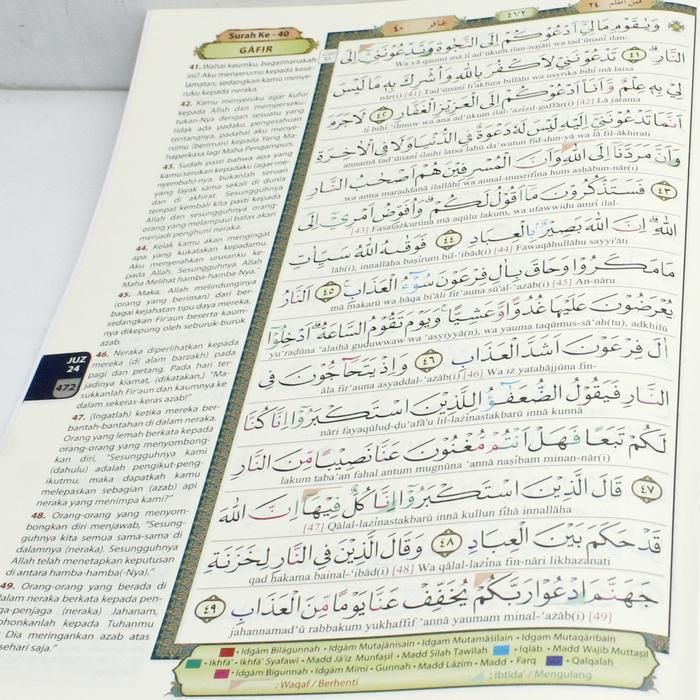 Surah Ke - 40
GĀFIR
41. Wahai kaumku, bagaimanakah
ini? Aku menyerumu kepada kese-
lamatan, sedangkan kamu menye-
ruku kepada neraka.
42. Kamu menyeruku agar kufur
kepada Allah dan memperseku-
tukan-Nya dengan sesuatu yang
tidak ada padaku pengetahuan
tentangnya, padahal aku menye-
rumu (beriman) kepada Yang Ma-
haperkasa lagi Maha Pengampun.
43. Sudah pasti bahwa apa yang
kamu serukan kepadaku (agar me-
nyembah)-nya bukanlah seruan
yang layak sama sekali di dunia
dan di akhirat. Sesungguhnya
tempat kembali kita pasti kepada
Allah dan sesungguhnya orang-
orang yang melampaui batas akan
menjadi penghuni neraka.
44. Kelak kamu akan mengingat
apa yang kukatakan kepadamu.
Aku menyerahkan urusanku ke-
pada Allah. Sesungguhnya Allah
Maha Melihat hamba-hamba-Nya."
45. Maka, Allah melindunginya
(orang yang beriman) dari ber-
bagai kejahatan tipu daya mereka,
sedangkan Fir'aun beserta kaum-
nya dikepung oleh seburuk-buruk
azab.
46. Neraka diperlihatkan kepada
mereka (di alam barzakh) pada
pagi dan petang. Pada hari ter-
jadinya kiamat, (dikatakan,) "Ma-
sukkanlah Fir'aun dan kaumnya ke
dalam sekeras-keras azab!"
47. (Ingatlah) ketika mereka ber-
bantah-bantahan di dalam neraka.
Orang yang lemah berkata kepada
orang-orang yang menyombong-
kan diri, "Sesungguhnya kami
(dahulu) adalah pengikut-peng-
ikutmu, maka dapatkah kamu
melepaskan sebagian (azab) api
neraka yang menimpa kami?"
48. Orang-orang yang menyom-
bongkan diri menjawab, "Sesung-
guhnya kita semua sama-sama di
dalamnya (neraka). Sesungguhnya
Allah telah menetapkan keputusan
di antara hamba-hamba(-Nya)."
49. Orang-orang yang berada di
dalam neraka berkata kepada pen-
ga-penjaga (neraka) Jahanam,
ohonkanlah kepada Tuhanmu
Dia meringankan azab atas
sehari saja."
JUZ
24
472
غافر ٤٠
٤٧٢
فمن اظلم ٢٤
وَيٰقَوْمِ مَا لِيْٓ اَدْعُوْكُمْ اِلَى النَّجٰوةِ وَتَدْعُوْنَنِيْٓ اِلَى
Wa yā qaumi mā lī ad'ūkum ilan-najāti wa tad'ūnanī ilan-
النَّارِۗ ٤١ تَدْعُوْنَنِيْ لِاَكْفُرَ بِاللّٰهِ وَاُشْرِكَ بِهٖ مَا لَيْسَ
nār(i) [41] Tad'ūnanī li'akfura billāhi wa usyrika bihī mā laisa
لِيْ بِهٖ عِلْمٌ وَّاَنَا۠ اَدْعُوْكُمْ اِلَى الْعَزِيْزِ الْغَفَّارِ ٤٢ لَا جَرَمَ
lī bihī 'ilmuw wa ana ad'ūkum ilal-'azīzil-gaffār(i) [42] Lā jarama
اَنَّمَا تَدْعُوْنَنِيْٓ اِلَيْهِ لَيْسَ لَهٗ دَعْوَةٌ فِى الدُّنْيَا وَلَا فِى الْاٰخِرَةِ
annamā tad'ūnanī ilaihi laisa lahū da'watun fid-dun-yā wa lā fil-ākhirati
وَاَنَّ مَرَدَّنَآ اِلَى اللّٰهِ وَاَنَّ الْمُسْرِفِيْنَ هُمْ اَصْحٰبُ النَّارِ
wa anna maraddanā ilallāhi wa annal-musrifīna hum aṣḥābun-nār(i)
٤٣ فَسَتَذْكُرُوْنَ مَآ اَقُوْلُ لَكُمْۗ وَاُفَوِّضُ اَمْرِيْٓ اِلَى
[43] Fasatażkurūna mā aqūlu lakum, wa ufawwiḍu amrī ilal-
اللّٰهِۗ اِنَّ اللّٰهَ بَصِيْرٌۢ بِالْعِبَادِ ٤٤ فَوَقٰىهُ اللّٰهُ سَيِّاٰتِ
lāh(i), innallāha baṣīrum bil-'ibād(i) [44] Fawaqāhullāhu sayyi'āti
مَا مَكَرُوْا وَحَاقَ بِاٰلِ فِرْعَوْنَ سُوْۤءُ الْعَذَابِۚ ٤٥ اَلنَّارُ
mā makarū wa ḥāqa bi'āli fir'auna sū'al-'ażāb(i) [45] An-nāru
يُعْرَضُوْنَ عَلَيْهَا غُدُوًّا وَّعَشِيًّا ۚوَيَوْمَ تَقُوْمُ السَّاعَةُ ۗ اَدْخِلُوْٓا
yu'raḍūna 'alaihā guduwwaw wa 'asyiyyā(n), wa yauma taqūmus-sā'ah(tu), adkhilū
اٰلَ فِرْعَوْنَ اَشَدَّ الْعَذَابِ ٤٦ وَاِذْ يَتَحَاۤجُّوْنَ فِى
āla fir'auna asyaddal-'ażāb(i) [46] Wa iż yataḥājjūna fin-
النَّارِ فَيَقُوْلُ الضُّعَفٰۤؤُا لِلَّذِيْنَ اسْتَكْبَرُوْٓا اِنَّا كُنَّا
nāri fayaqūluḍ-ḍu'afā'u lil-lażīnastakbarū innā kunnā
لَكُمْ تَبَعًا فَهَلْ اَنْتُمْ مُّغْنُوْنَ عَنَّا نَصِيْبًا مِّنَ النَّارِ
lakum taba'an fahal antum mugnūna 'annā naṣībam minan-nār(i)
٤٧ قَالَ الَّذِيْنَ اسْتَكْبَرُوْٓا اِنَّا كُلٌّ فِيْهَآ اِنَّ اللّٰهَ
[47] Qālal-lażīnastakbarū innā kullun fīhā innallāha
قَدْ حَكَمَ بَيْنَ الْعِبَادِ ٤٨ وَقَالَ الَّذِيْنَ فِى النَّارِ لِخَزَنَةِ
qad ḥakama bainal-'ibād(i) [48] Wa qālal-lażīna fin-nāri likhazanati
جَهَنَّمَ ادْعُوْا رَبَّكُمْ يُخَفِّفْ عَنَّا يَوْمًا مِّنَ الْعَذَابِ ٤٩
jahannamad'ū rabbakum yukhaffif 'annā yaumam minal-'ażāb(i) [49]
• Idgām Bilāgunnah • Idgām Mutajānisain • Idgam Mutamāṡilain • Idgam Mutaqāribain
• Ikhfā' • Ikhfā' Syafawi • Madd Jā'iz Munfaṣil • Madd Ṣilah Ṭawīlah • Iqlāb • Madd Wajib Muttaṣil
• Idgam Bigunnah • Idgām Mīmī • Gunnah • Madd Lāzim • Madd • Farq • Qalqalah
: Waqaf / Berhenti : Ibtida' / Mengulang